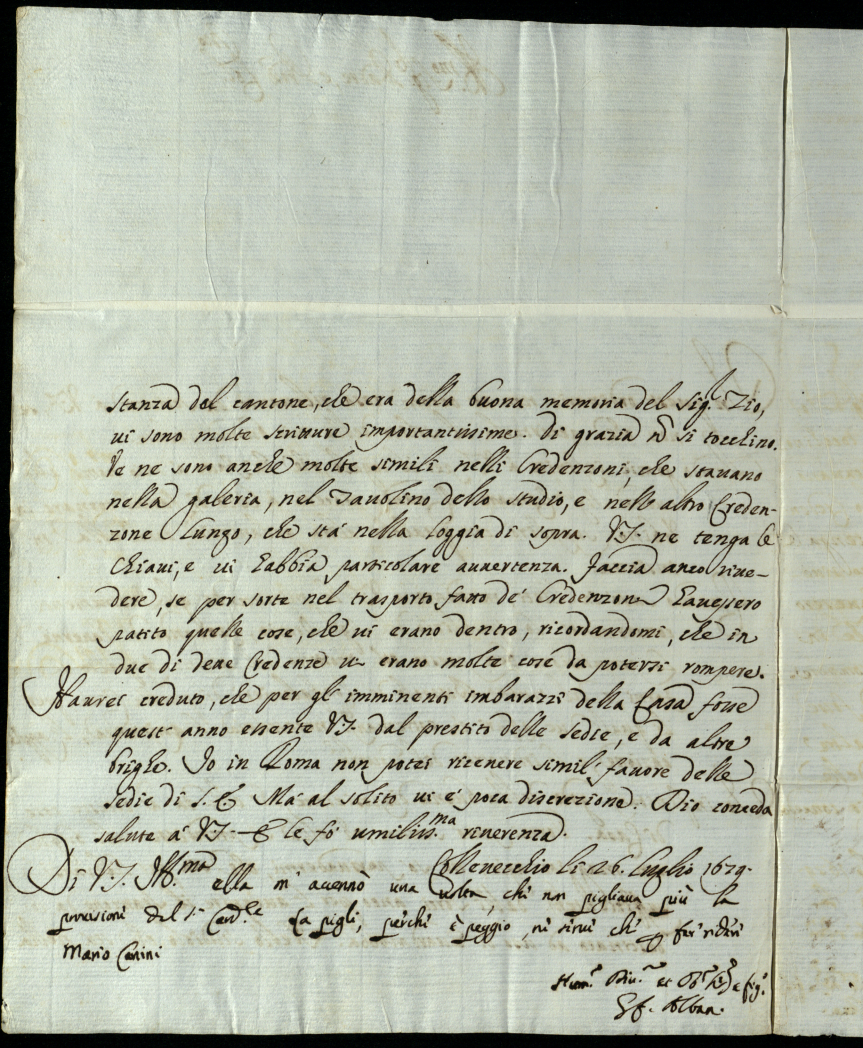 stanza del cantone, che era della buona memoria del Sig.r Zio,
ui sono molte scritture importantissime. Di grazia nõ si tocchino.
Ve ne sono anche molte simili nelli Credenzoni, che stauano
nella galeria, nel Tauolino dello studio, e nell altro Creden-
zone lungo, che sta' nella loggia di sopra. V.S. ne tenga le
chiaui, e ui habbia particolare auuertenza. Faccia anco riue-
dere, se per sorte nel trasporto fatto de' Credenzoni hauessero
patito quelle cose, che ui erano dentro, ricordandomi, che in
due di dette Credenze ui erano molte cose da potersi rompere.
Haurei creduto, che per gl' imminenti imbarazzi della Casa fosse
quest' anno esente V.S. dal prestito delle sedie, e da altre
brighe. Io in Roma non potei ritenere simil' fauore delle
sedie di S. E. Ma' al solito ui e' poca discrezione. Dio conceda
salute a' V.S. E le fo' umiliss.ma riuerenza.
Di V.S. Ill.ma Collenecchio li 26. Luglio 1679.
ella m' acennò una uolta, chi non pigliaua più la
prouisioni del S.r Card.le La pigli, perchi è peggio, ni serui chi ꝑ far ridiri
Mario Canini
Hum.o Diu.mo et Ob.
Alban.